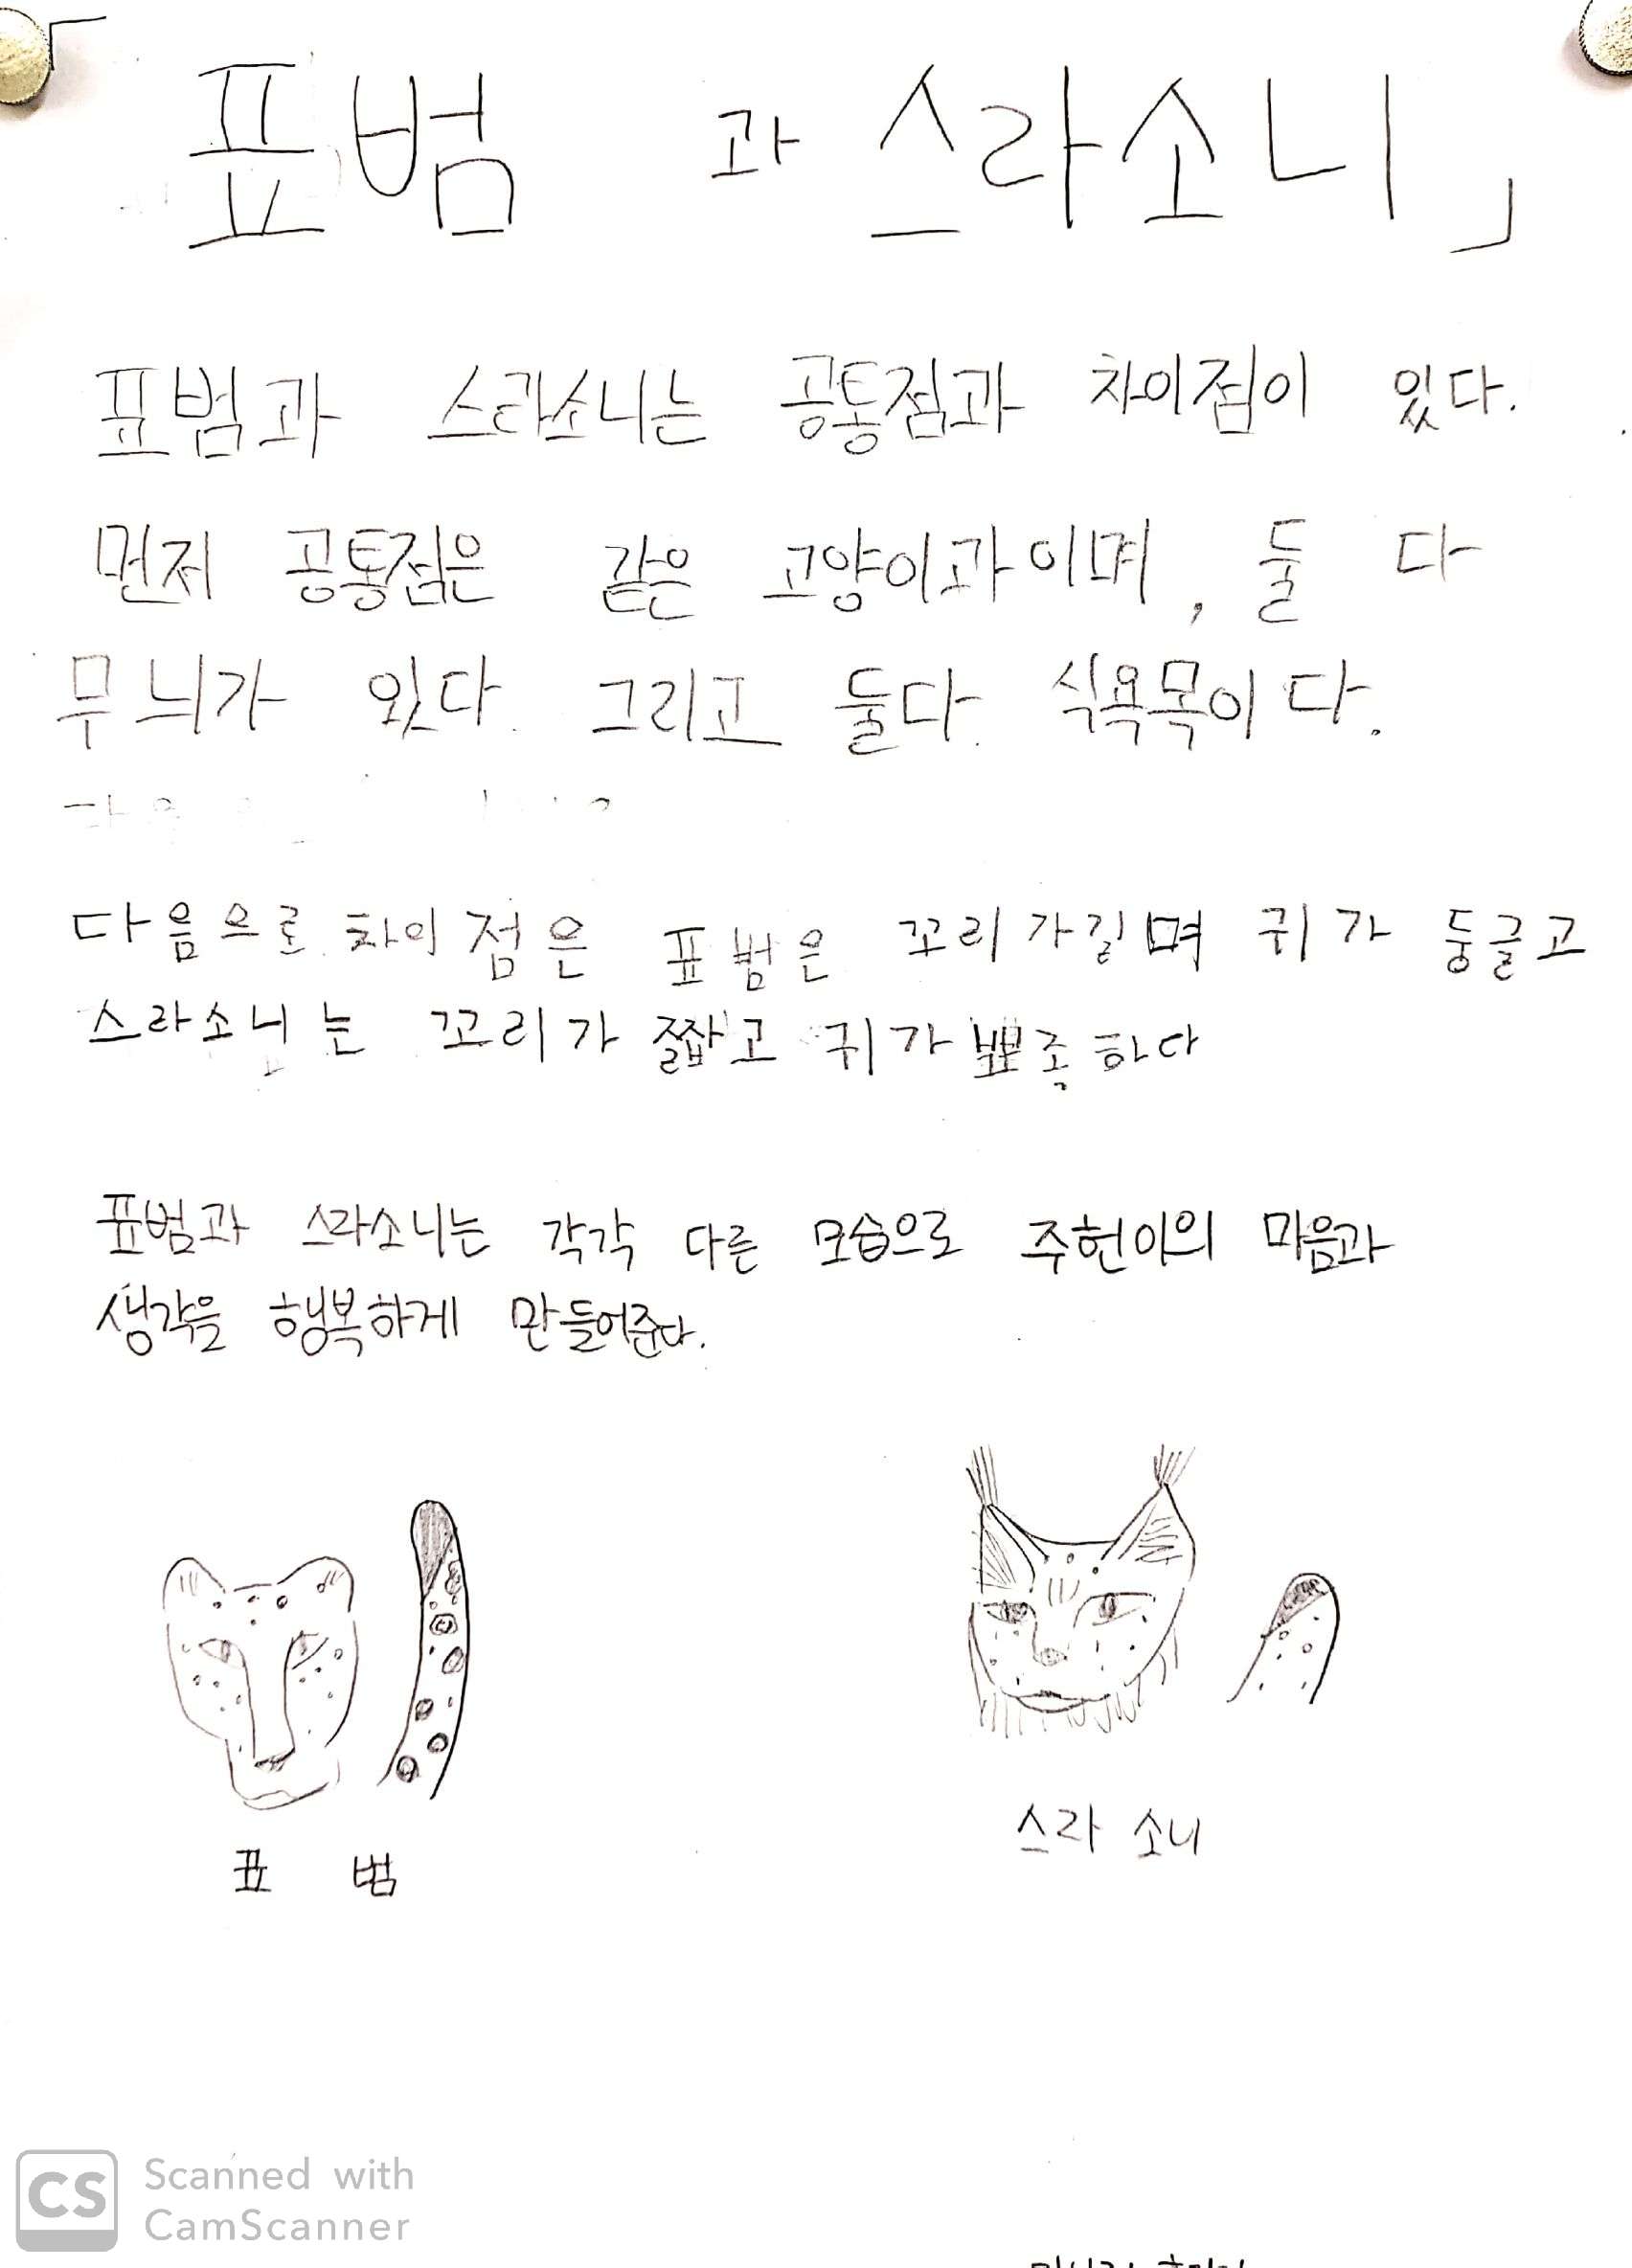 「표범과 스라소니」
표범과 스라소니는 공통점과 차이점이 있다.
먼저 공통점은 같은 고양이과이며, 둘 다
무늬가 있다. 그리고 둘다 식욕목이다.
다음으로 차이점은 표범은 꼬리가길며 귀가 둥글고
스라소니는 꼬리가 짧고 귀가 뾰족하다
표범과 스라소니는 각각 다른 모습으로 주헌이의 마음과
생각을 행복하게 만들어준다.
표범
스라소니
CS Scanned with
CamScanner